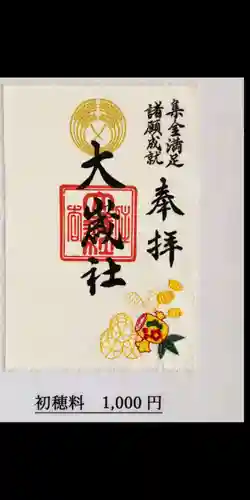 集金満足
諸願成就
奉拝
大歳社
初穂料 1,000円